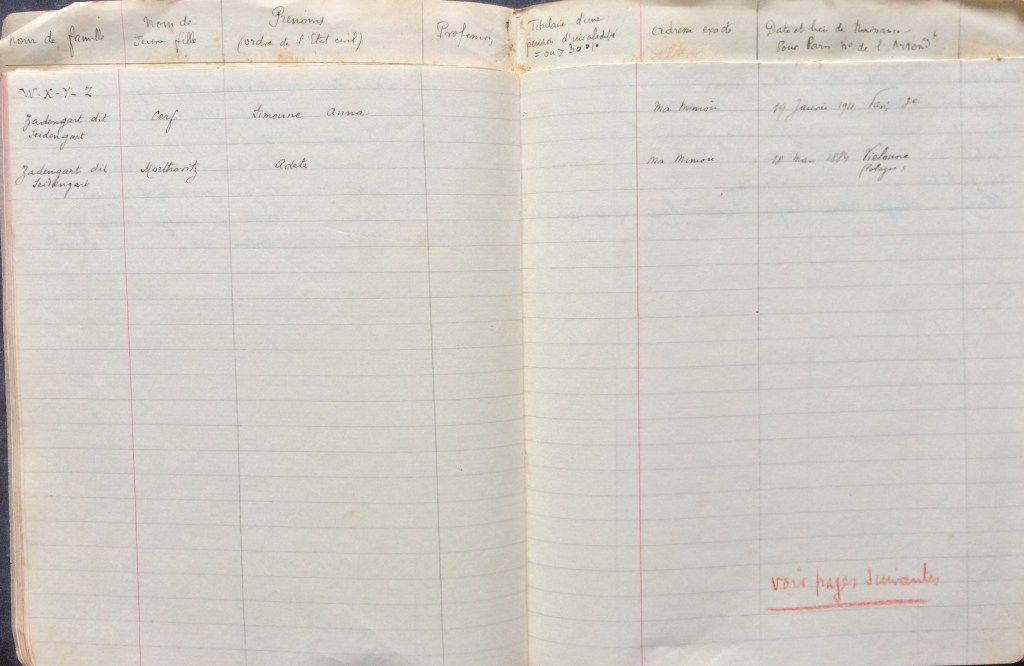 nom de famille
nom de
Jeune fille
Prénoms
(ordre de l'Etat civil)
Profession
Titulaire d'une
pension d'invalidité
= ou > 30 %
Adresse exacte
Date et lieu de Naissance
Pour Paris N° de l'Arrondt
W-X-Y-Z
Zadengart dit
Seidengart
Cerf
Simonne Anna
Ma Minion
19 Janvier Paris 2e
Zadengart dit
Seidengart
Morthovitz
Adele
Ma Minion
1884
(Pologne)
voir pages suivantes